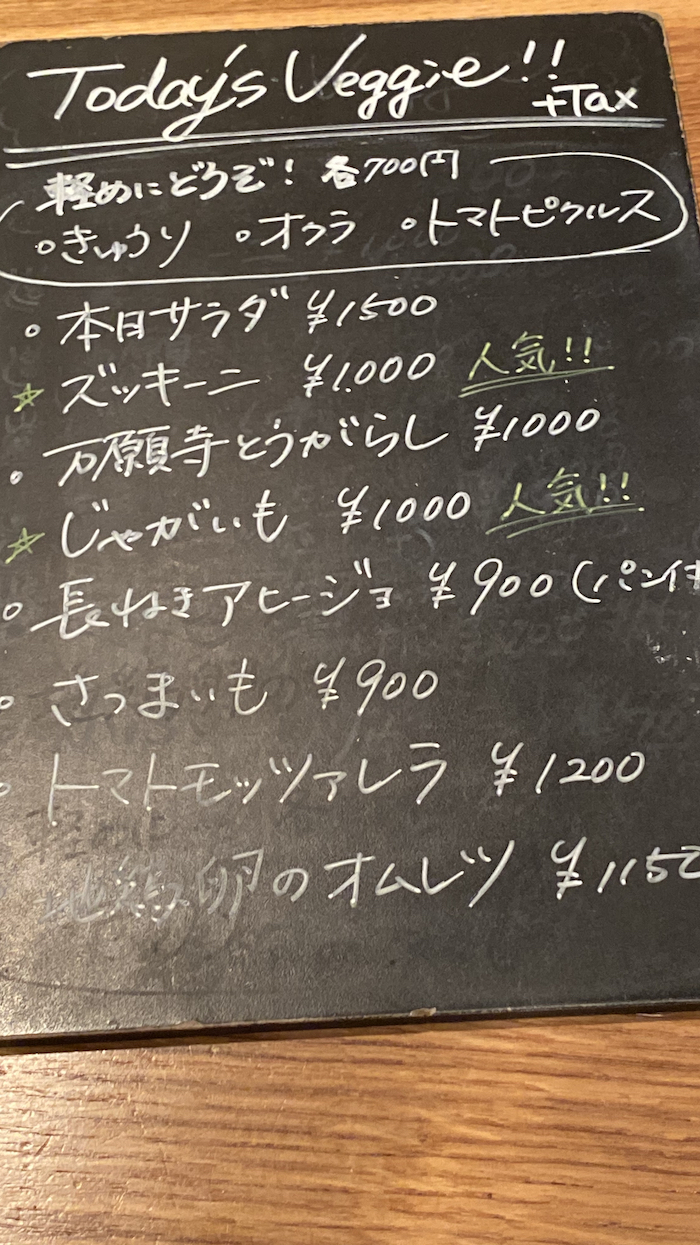 Today's Veggie!!
+Tax
軽めにどうぞ! 各700円
・きゅうり ・オクラ ・トマトピクルス
・本日サラダ ¥1500
☆ズッキーニ ¥1.000 人気!!
・万願寺とうがらし ¥1000
☆じゃがいも ¥1000 人気!!
・長ねぎアヒージョ ¥900(パン付
・さつまいも ¥900
・トマトモッツァレラ ¥1200
・地鶏卵のオムレツ ¥1150